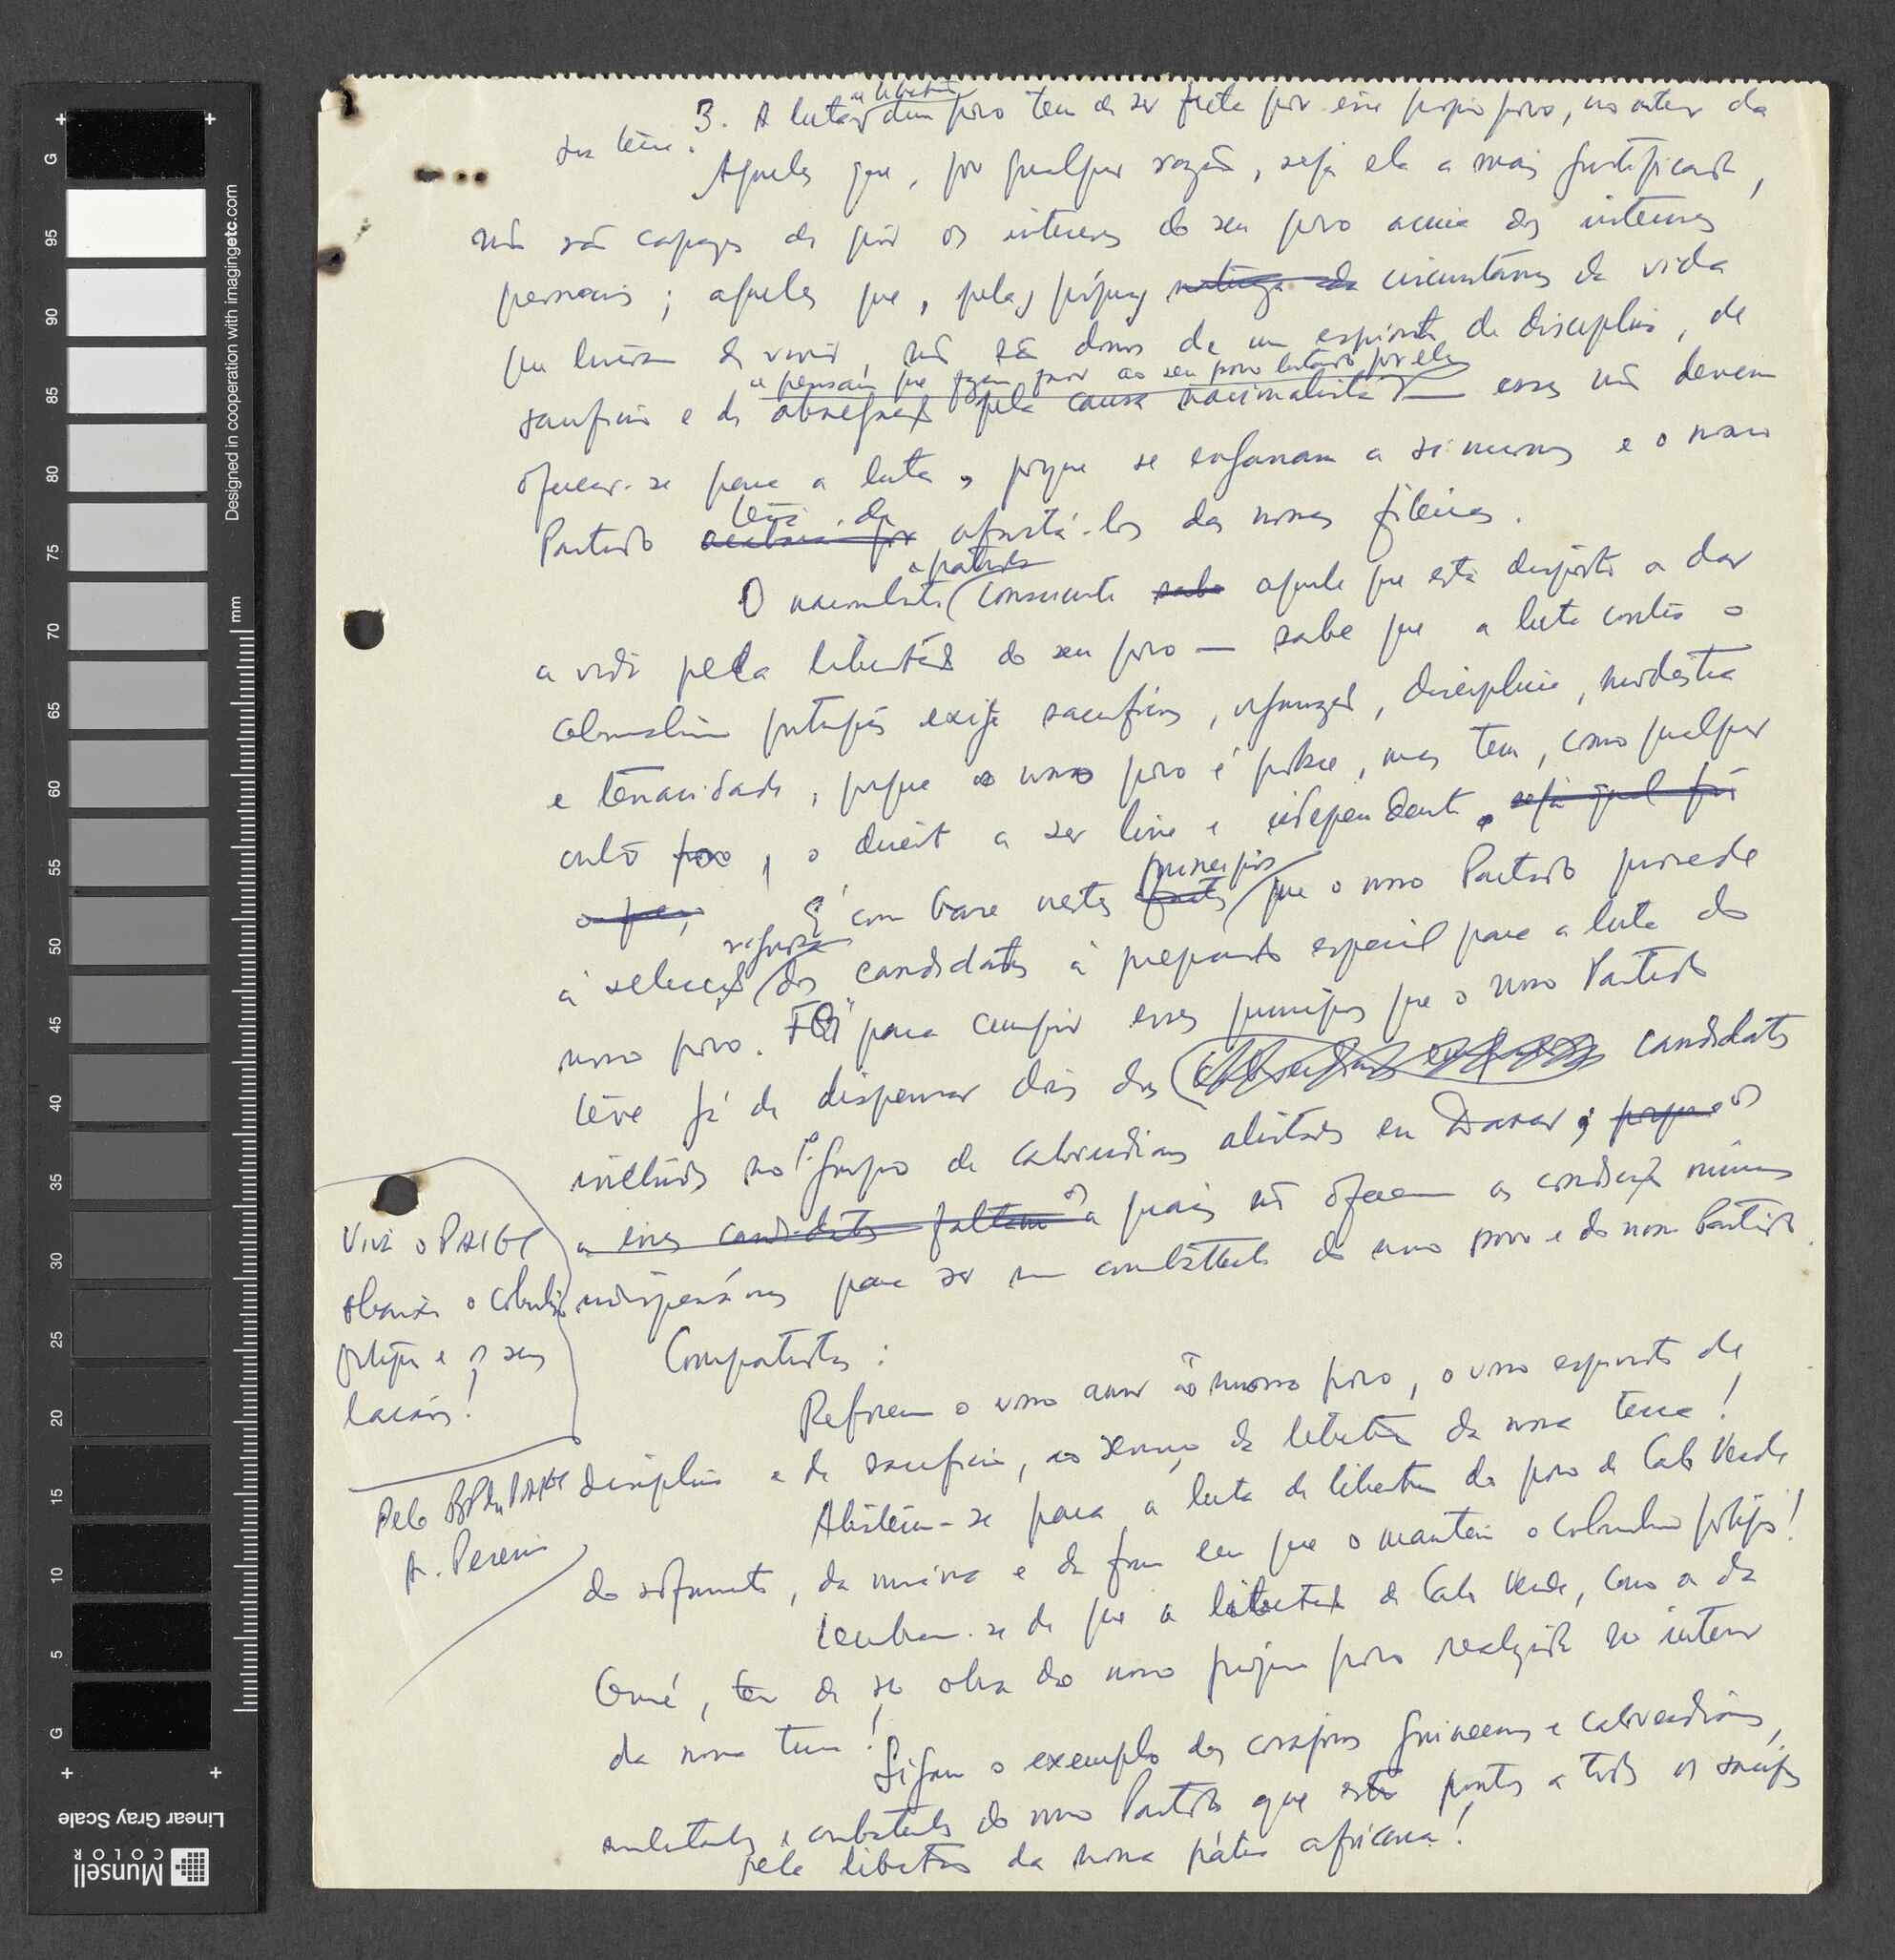 3. A luta de libertação dum povo tem de ser feita por esse próprio povo, no interior da
sua terra.
Aqueles que, por qualquer razão, seja ela a mais justificada,
não são capazes de pôr os interesses do seu povo acima dos interesses
pessoais; aqueles que, pelas próprias circunstâncias da vida
que tiveram de viver, não são donos de um espírito de disciplina, de
e pensam que fazem favor ao seu povo lutando por ele
sacrifício e de abnegação pela causa nacionalista — esses não devem
oferecer-se para a luta, porque se enganam a si mesmos e o nosso
Partido terá de afastá-los das nossas fileiras.
O nacionalista e patriota consciente aquele que está disposto a dar
a vida pela libertação do seu povo — sabe que a luta contra o
colonialismo português exige sacrifícios, organização, disciplina, modéstia
e tenacidade, porque o nosso povo é pobre, mas tem, como qualquer
outro povo, o direito a ser livre e independente. seja qual for
o preço,
É com base nestes princípios que o nosso Partido procede
à selecção rigorosa dos candidatos à preparação especial para a luta do
nosso povo. Foi para cumprir esses princípios que o nosso Partido
teve já de dispensar dois dos candidatos
incluídos no 1º grupo de caboverdianos alistados em Dakar, porque
a esses candidatos faltam os quais não oferecem as condições mínimas
indispensáveis para ser um combatente do nosso povo e do nosso Partido.
Compatriotas:
Reforcem o vosso amor ao nosso povo, o vosso espírito de
disciplina e de sacrifício, ao serviço da libertação da nossa terra!
Alistem-se para a luta de libertação do povo de Cabo Verde
do sofrimento, da miséria e da fome em que o mantém o colonialismo português!
Lembrem-se de que a libertação de Cabo Verde, como a da
Guiné, tem de ser obra do nosso próprio povo realizada no interior
da nossa terra!
Sigam o exemplo dos corajosos guineenses e caboverdianos,
militantes e combatentes do nosso Partido que estão prontos a todos os sacrifícios
pela libertação da nossa pátria africana!
Viva o PAIGC
Abaixo o colonialismo
português e os seus
lacaios!
Pelo BP do PAIGC
A. Pereira
Designed in cooperation with imagingetc.com
mm
G 95 90 85 80 75 70 65 60 55 50 45 40 35 30 25 20 15 10 5 G
Linear Gray Scale
Munsell
COLOR